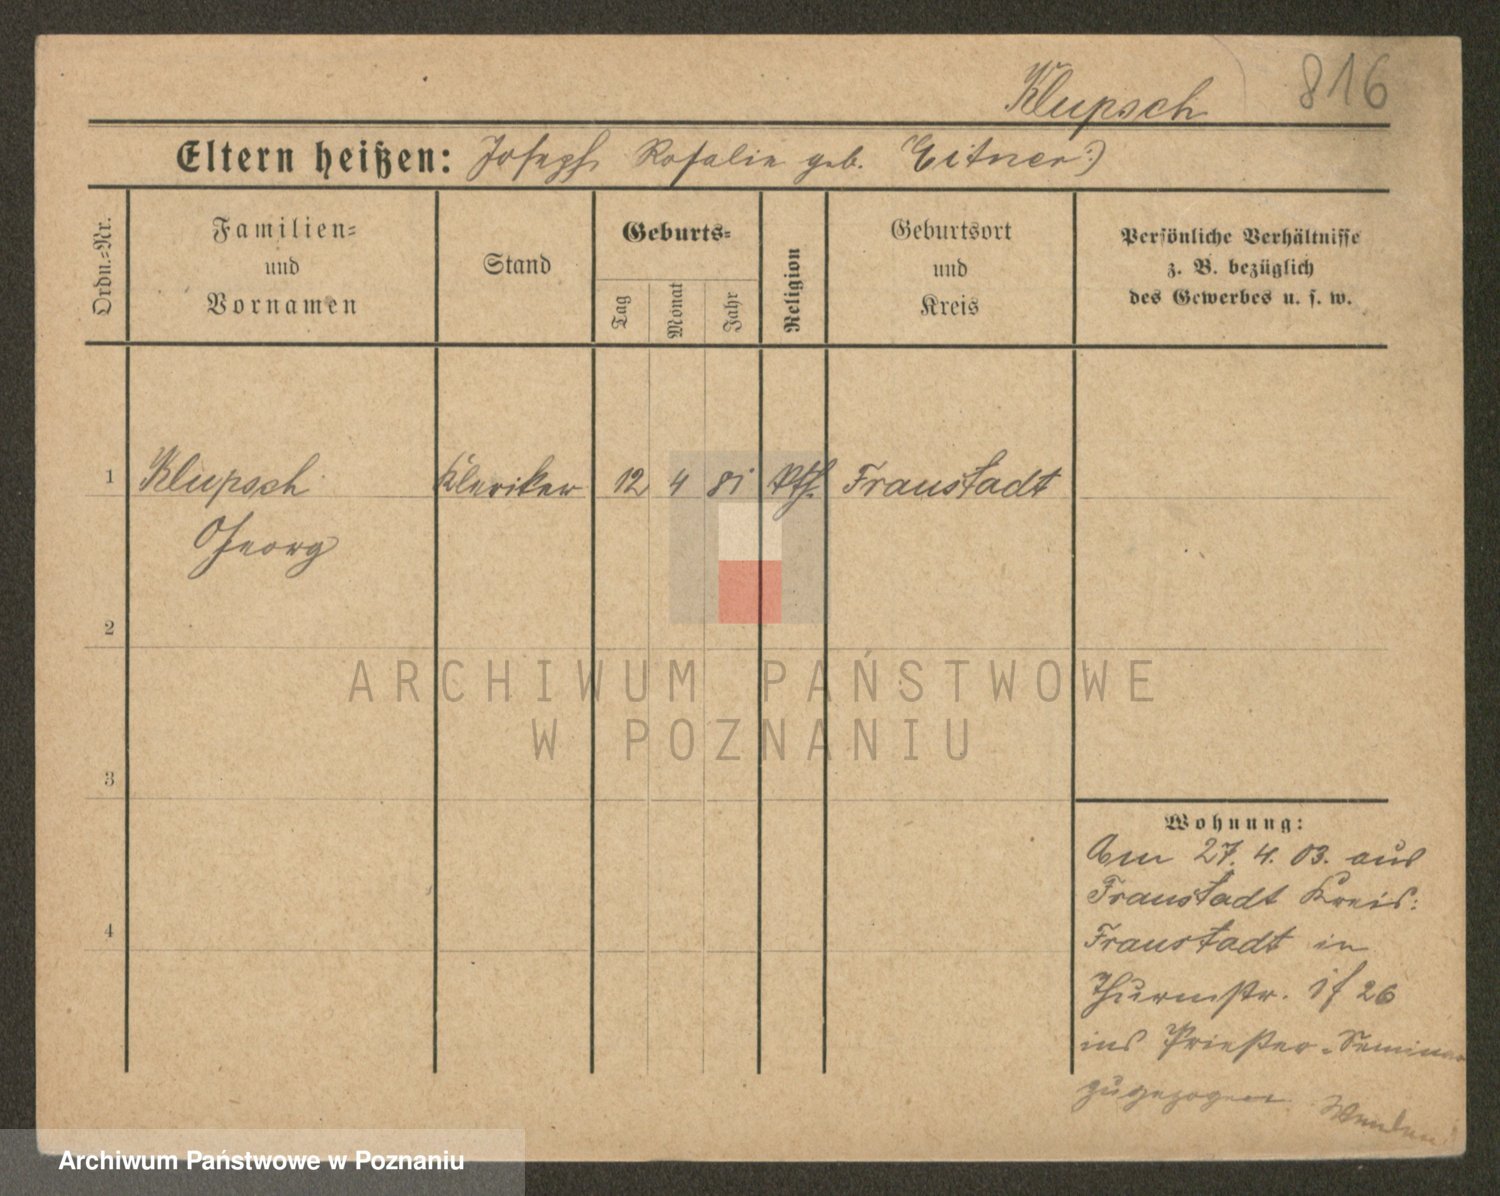 Klupsch 816
Eltern heißen: Joseph Rosalie geb. Eitner:)
Ordn.-Nr.
Familien-
und
Vornamen
Stand
Geburts-
Tag
Monat
Jahr
Religion
Geburtsort
und
Kreis
Persönliche Verhältnisse
z. B. bezüglich
des Gewerbes u. s. w.
1 Klupsch Kleriker 12 4 81 kth. Fraustadt
Georg
2
3
4
Wohnung:
Am 27. 4. 03. aus
Fraustadt Kreis:
Fraustadt in
Thurmstr. 26
ins Priester-Seminar
zugezogen Wenden!
ARCHIWUM PAŃSTWOWE
W POZNANIU
Archiwum Państwowe w Poznaniu